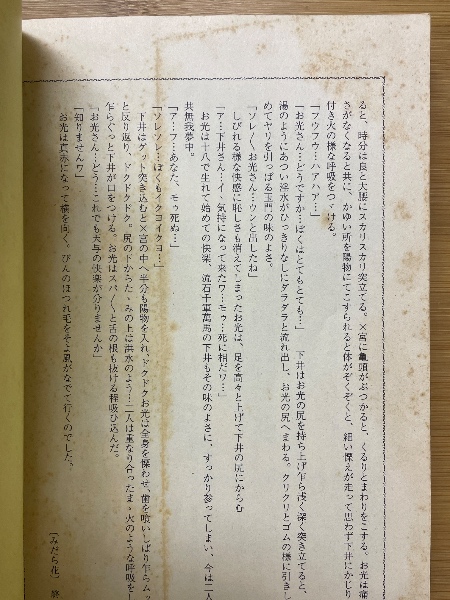 ると、時分は良と大腰にスカリスカリ突立てる。×宮に亀頭がぶつかると、くるりとまわりをこする。お光は痛
さがなくなると共に、かゆい所を陽物にてこすられると体がぞくぞくと、細い慄えが走って思わず下井にかじり
付き火の様な呼吸をつゞける。
「フウフウ…ハアハア…」
「お光さん…どうですか…ぼくはとてもとても…」 下井はお光の尻を持ち上げ乍ら浅く深く突き立てると、
湯のようにあつい淫水がひっきりなしにダラダラと流れ出し、お光の尻へまわる。クリクリとゴムの様に引きし
めてヤリを引っぱる玉門の味のよさ。
「ソレ/\お光さん…ウンと出したね」
しびれる様な快感に恥しさも消えてしまったお光は、足を高々と上げて下井の尻にから心
「ア…下井さん…イ、気持になって来たワ…モゥ…死に相だワ…」
お光は十八で生れて始めての快楽、流石千軍萬馬の下井もその味のよさに、すっかり参ってしまい、今は二人
共無我夢中。
「ア…フ…あなた、モゥ死ぬ…」
「ソレソレ…ぼくもイクヨイクヨ…」
下井はグット突き込むと×宮の中へ半分も陽物を入れ、ドクドクお光は全身を慄わせ、歯を喰いしばり乍らムッ
と反り返り、ドクドクドク。尻の下からたゝみの上は洪水のよう…二人は重なり合ったまゝ火のような呼吸をし
乍らぐっと下井が口をつける。お光はスパ/\と舌の根も抜ける程吸ひ込んだ。
「お光さん…どう…これでも天与の快楽が分りませんか」
「知りませんワ」
お光は真赤になって横を向く。びんのほつれ毛をそと風がなでて行くのでした。
(みだら花) 終